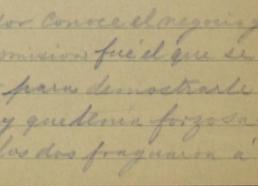 dor conoce el negocio y
omision fué el que se
para demostrarle
y que tenia forzosa
los dos fraguaron á